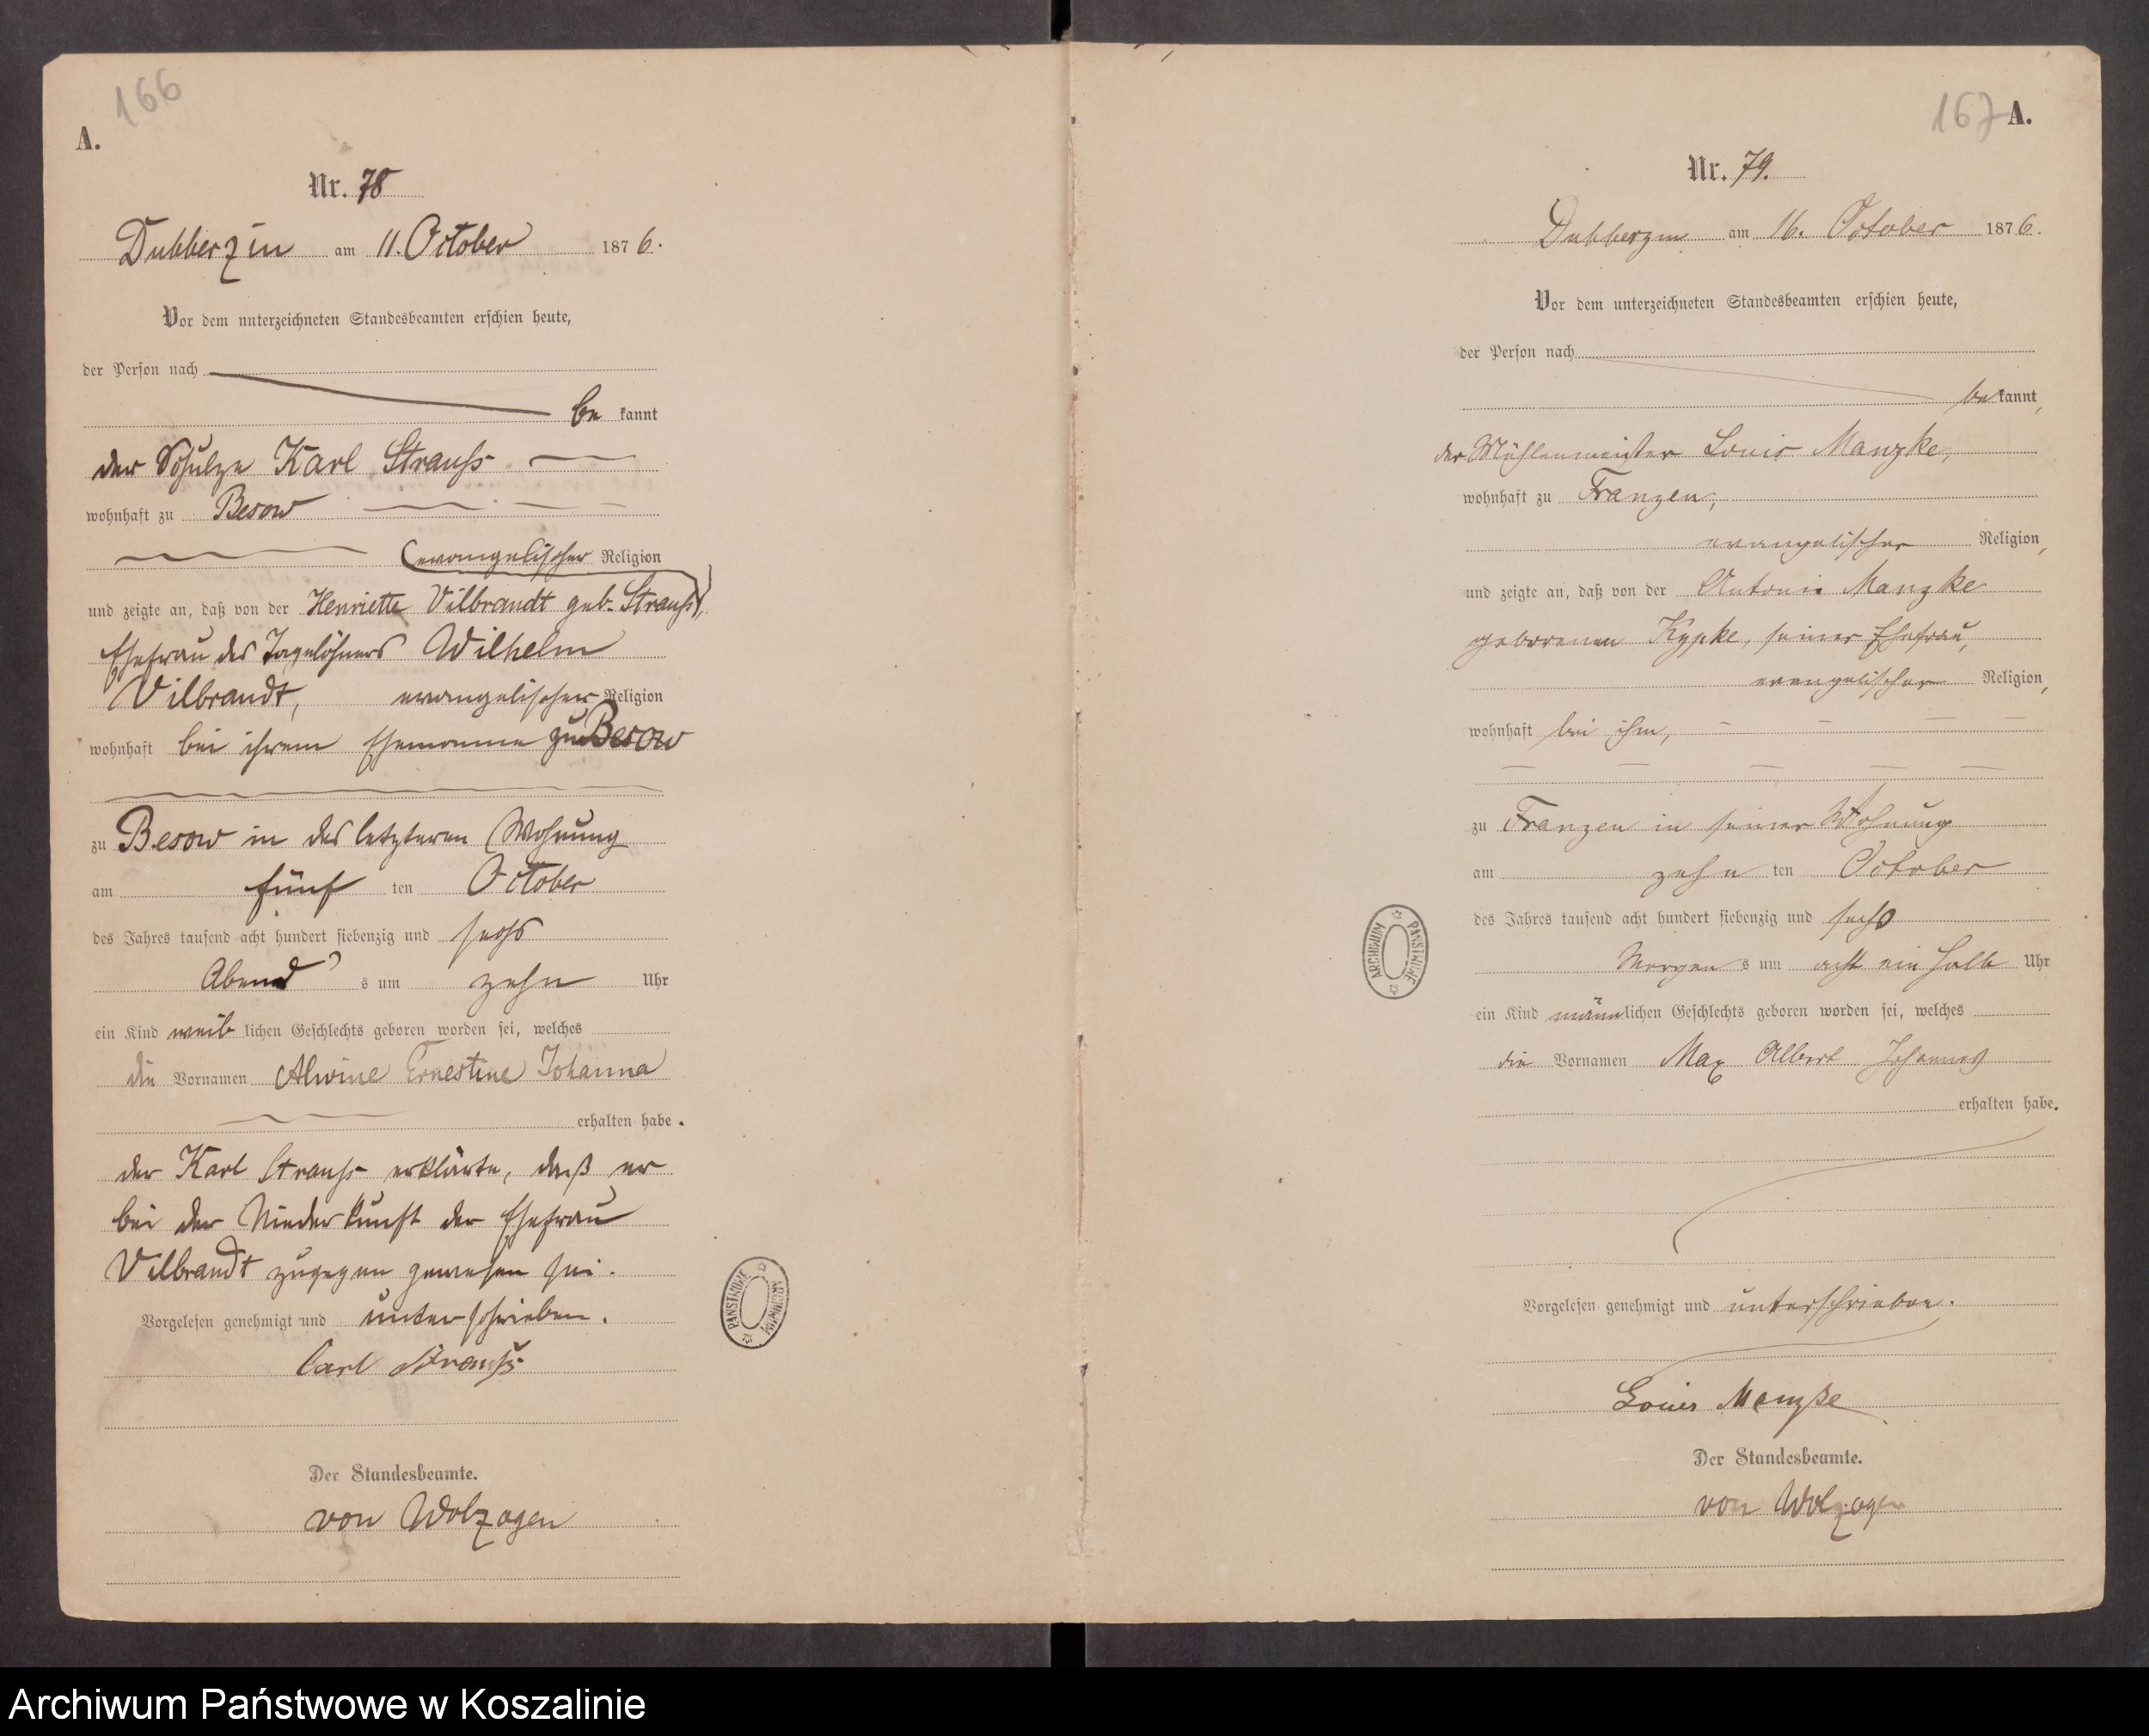 166
A.
Nr. 78
Dubberzin am 11. October 1876.
Vor dem unterzeichneten Standesbeamten erschien heute,
der Person nach
be kannt
der Schulze Karl Strauß
wohnhaft zu Besow
evangelischer Religion
und zeigte an, daß von der Henriette Vilbrandt geb. Strauß,
Ehefrau des Tagelöhners Wilhelm
Vilbrandt, evangelischer Religion
wohnhaft bei ihrem Ehemanne zu Besow
zu Besow in des letzteren Wohnung
am fünf ten October
des Jahres tausend acht hundert siebenzig und sechs
Abend s um zehn Uhr
ein Kind weib lichen Geschlechts geboren worden sei, welches
die Vornamen Alwine Ernestine Johanna
erhalten habe.
der Karl Strauß erklärte, daß er
bei der Niederkunft der Ehefrau
Vilbrandt zugegen gewesen sei.
Vorgelesen genehmigt und unterschrieben.
Carl Strauß
Der Standesbeamte.
von Wolzogen
ARCHIWUM PAŃSTWOWE
167 A.
Nr. 79.
Dubberzin am 16. October 1876.
Vor dem unterzeichneten Standesbeamten erschien heute,
der Person nach
be kannt,
der Mühlenmeister Louis Manzke,
wohnhaft zu Franzen,
evangelischer Religion,
und zeigte an, daß von der Antonie Manzke
geborenen Kypke, seiner Ehefrau,
evangelischer Religion,
wohnhaft bei ihm,
zu Franzen in seiner Wohnung
am zehn ten October
des Jahres tausend acht hundert siebenzig und sechs
Morgen s um acht ein halb Uhr
ein Kind männlichen Geschlechts geboren worden sei, welches
die Vornamen Max Albert Johannes
erhalten habe.
Vorgelesen genehmigt und unterschrieben.
Louis Manzke
Der Standesbeamte.
von Wolzogen
ARCHIWUM PAŃSTWOWE
Archiwum Państwowe w Koszalinie